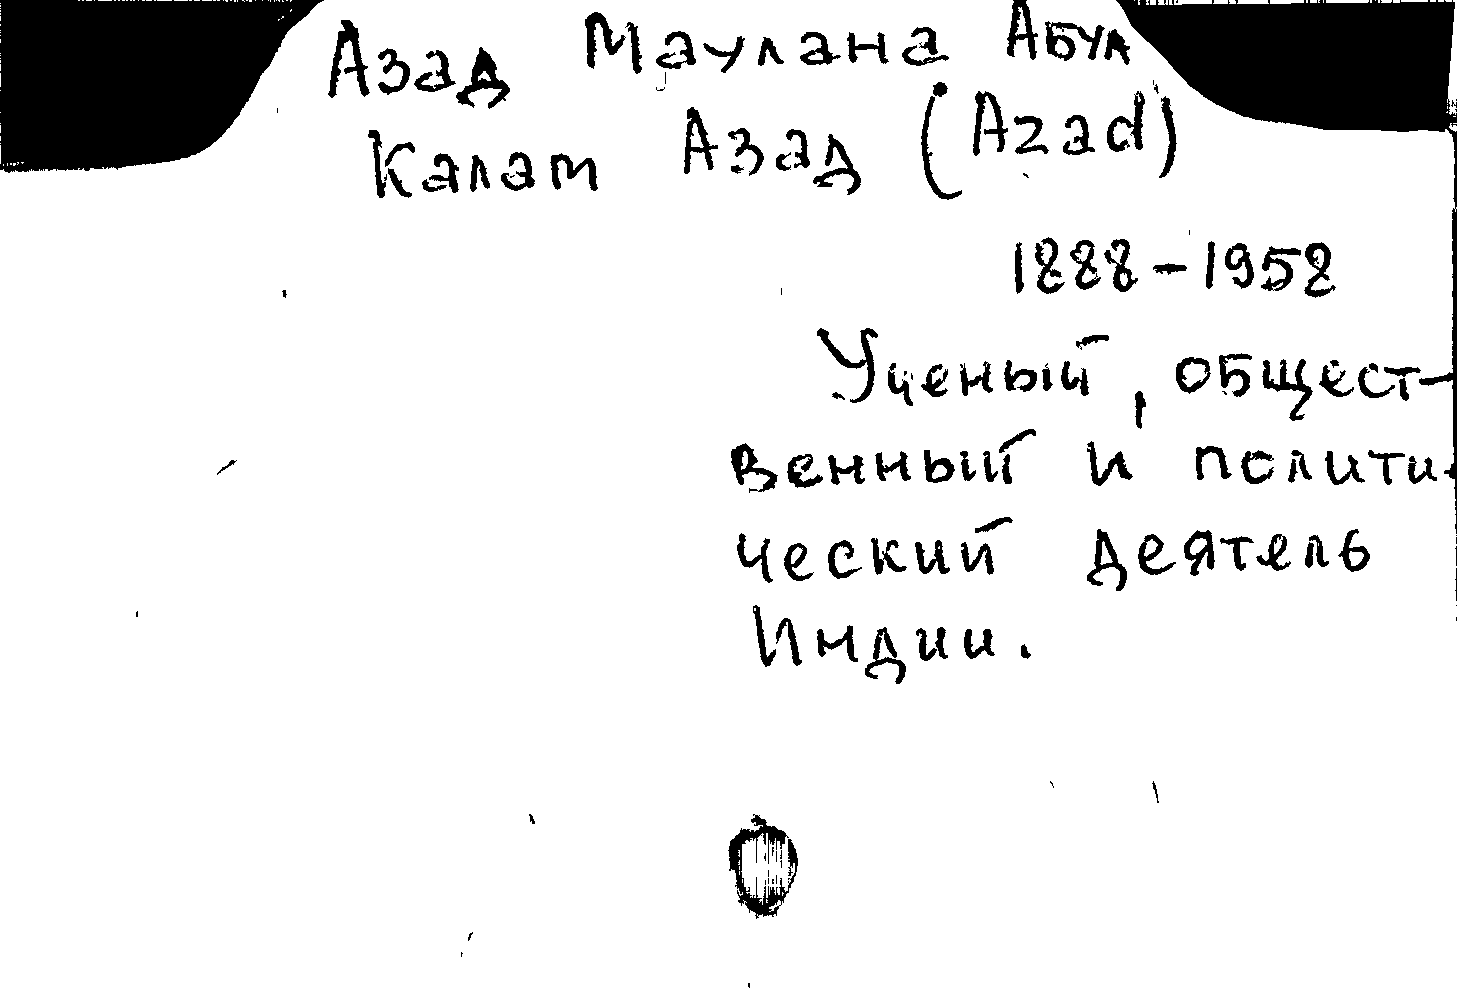 Азад Маулана Абул
Калам Азад (Azad)
1888-1958
Ученый, общест-
венный и полити-
ческий деятель
Индии.